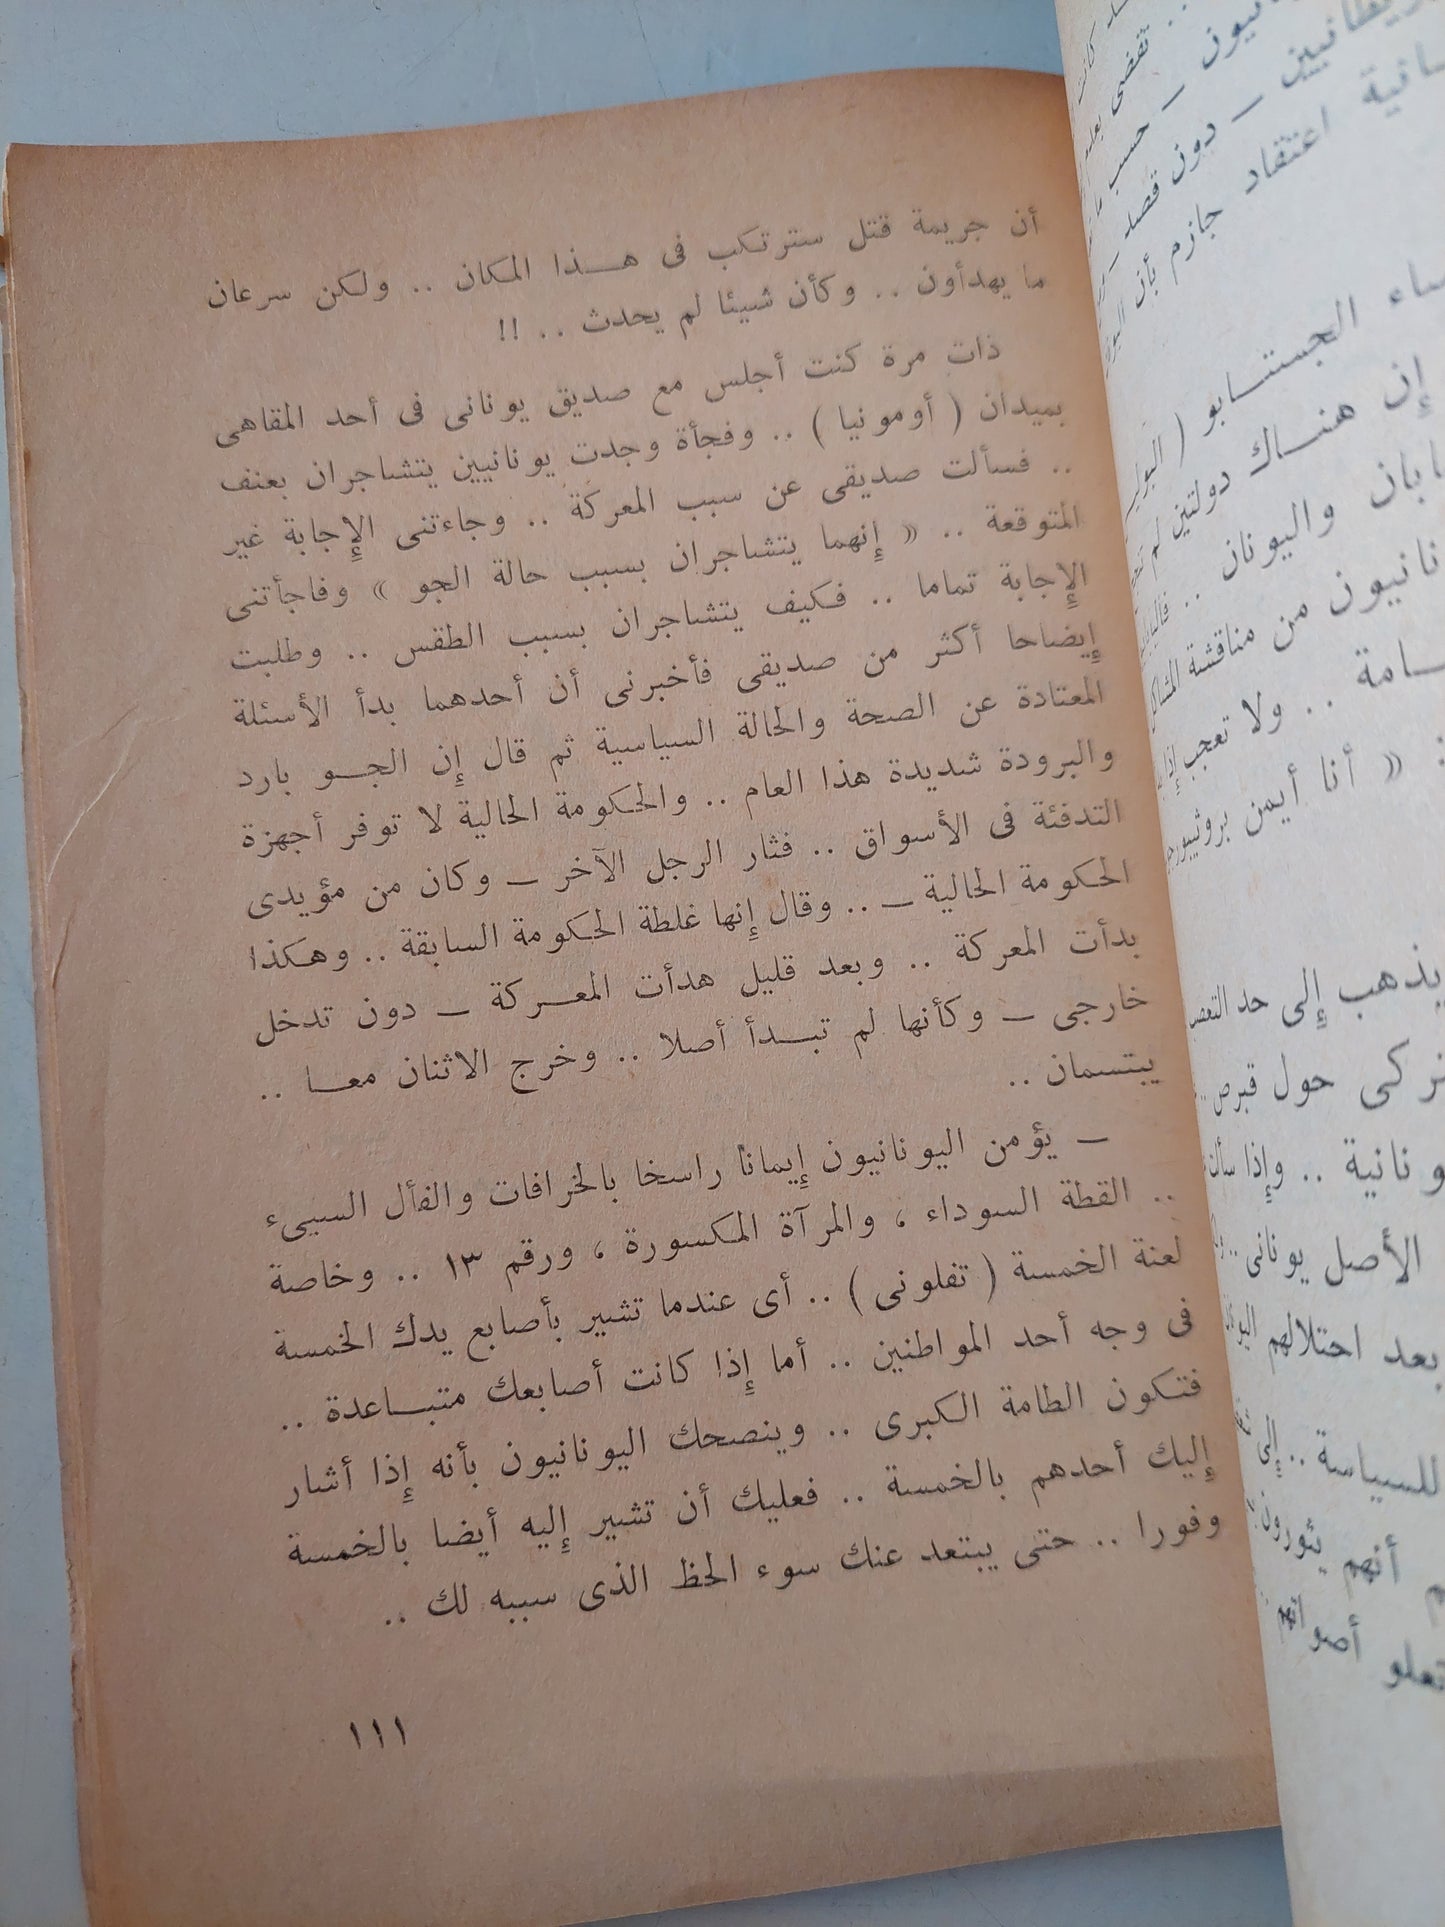 أن جريمة قتل سترتكب فى هـــذا المكان .. ولكن سرعان
ما يهدأون .. وكأن شيئا لم يحدث .. !!
ذات مرة كنت أجلس مع صديق يونانى فى أحد المقاهى
بميدان ( أومونيا ) .. وفجأة وجدت يونانيين يتشاجران بعنف
.. فسألت صديقى عن سبب المعركة .. وجاءتنى الإجابة غير
المتوقعة .. « إنهما يتشاجران بسبب حالة الجو » وفاجأتنى
الإجابة تماما .. فكيف يتشاجران بسبب الطقس .. وطلبت
إيضاحا أكثر من صديقى فأخبرنى أن أحدهما بدأ الأسئلة
المعتادة عن الصحة والحالة السياسية ثم قال إن الجـــو بارد
والبرودة شديدة هذا العام .. والحكومة الحالية لا توفر أجهزة
التدفئة فى الأسواق .. فثار الرجل الآخر ــ وكان من مؤيدى
الحكومة الحالية ــ .. وقال إنها غلطة الحكومة السابقة .. وهكذا
بدأت المعركة .. وبعد قليل هدأت المعـــركة ــ دون تدخل
خارجى ــ وكأنها لم تبـــدأ أصلا .. وخرج الاثنان معـــا ..
يبتسمان ..
ــ يؤمن اليونانيون إيمانا راسخا بالخرافات والفأل السيىء
.. القطة السوداء ، والمرآة المكسورة ، ورقم ١٣ .. وخاصة
لعنة الخمسة ( تفلونى ) .. أى عندما تشير بأصابع يدك الخمسة
فى وجه أحد المواطنين .. أما إذا كانت أصابعك متبـــاعدة ..
فتكون الطامة الكبرى .. وينصحك اليونانيون بأنه إذا أشار
إليك أحدهم بالخمسة .. فعليك أن تشير إليه أيضا بالخمسة
وفورا .. حتى يبتعد عنك سوء الحظ الذى سببه لك ..
١١١
.. تقضى
حسب
ــ دون قصد ــ
اعتقاد جازم بأن
الجستـــابو (
إن هنـــاك دولتين لم
واليونان ..
من مناقشة
.. ولا تعجب إذا
« أنا أيمن
يذهب إلى حد
حول قبرص ..
.. وإذا
الأصل يونانى ..
بعد احتلالهم
للسياسة .. إلى
أنهم يثورون